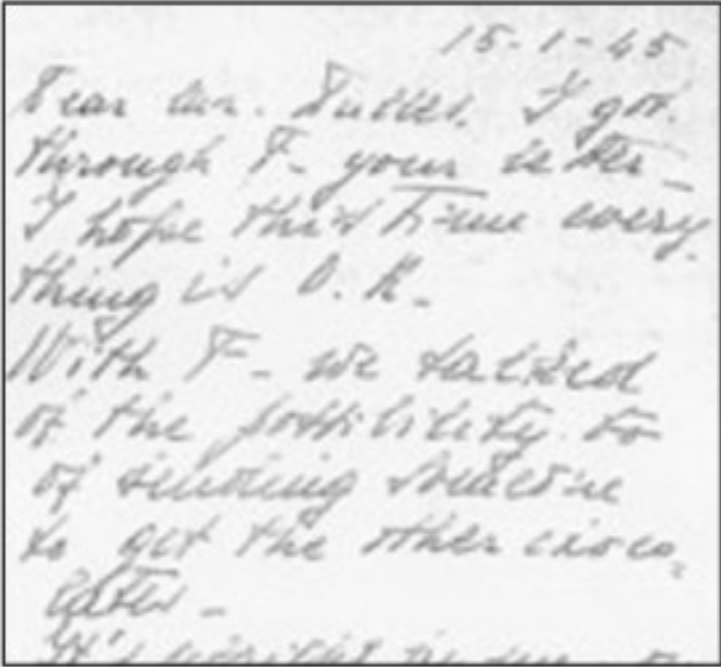 15-1-45
Dear Mr. Dulles. I got
through F- your letter-
I hope this time every
thing is O.K.-
With F- we talked
of the possibility to
of sending someone
to get the other choco,
lates-
It's